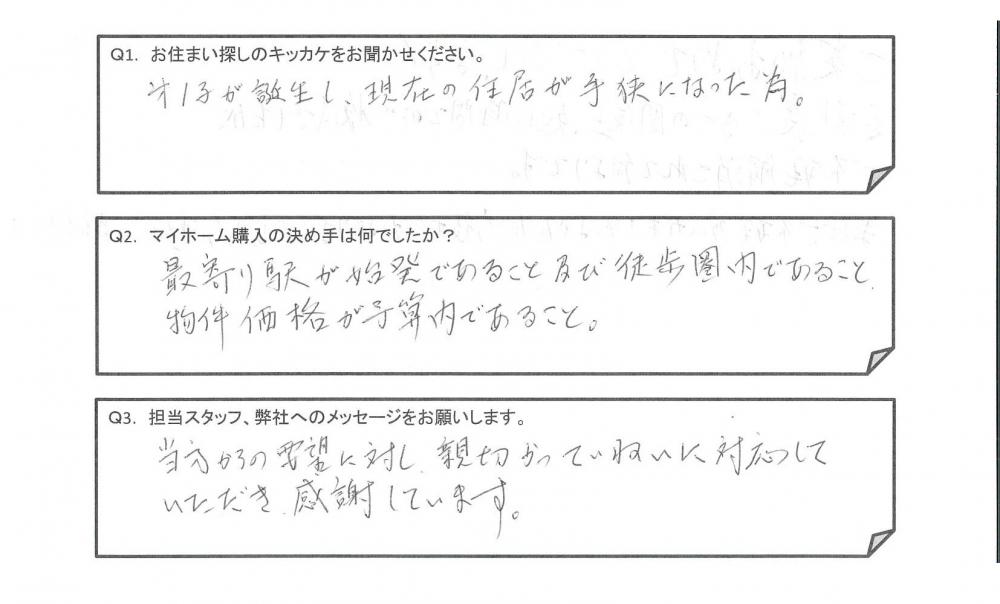 Q1. お住まい探しのキッカケをお聞かせください。
才1子が誕生し、現在の住居が手狭になった為。
Q2. マイホーム購入の決め手は何でしたか？
最寄り駅が始発であること及び徒歩圏内であること、
物件価格が予算内であること。
Q3. 担当スタッフ、弊社へのメッセージをお願いします。
当方からの要望に対し、親切かつていねいに対応して
いただき、感謝しています。